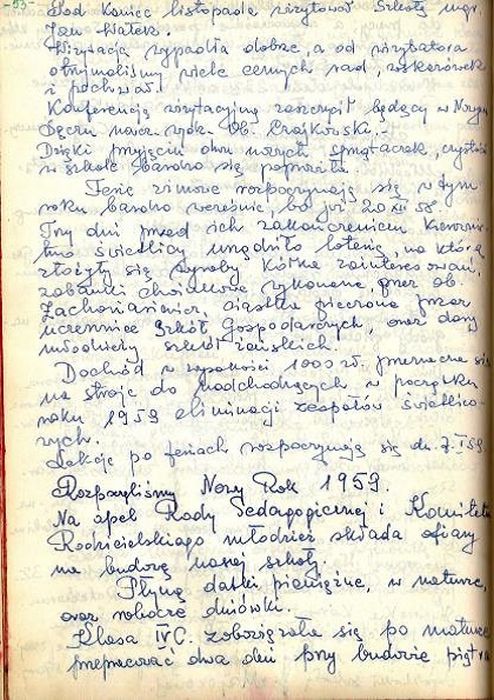 -53-
Pod koniec listopada wizytował szkołę mgr.
Jan Watek.
Wizytacja wypadła dobrze, a od wizytatora
otrzymaliśmy wiele cennych rad, wskazówek
i pochwał.
Konferencję wizytacyjną zaszczycił będący w Nowym
Sączu nacz. wyk. Ob. Czajkowski.-
Dzięki przyjęciu dwu nowych sprzątaczek, czystość
w szkole bardzo się poprawiła.
Ferie zimowe rozpoczynają się w tym
roku bardzo wcześnie, bo już 20 XII 58.
Trzy dni przed ich zakończeniem Kierownic-
two świetlicy urządziło loterię, na którą
złożyły się wyroby Kółka zainteresowań,
zabawki choinkowe wykonane przez ob.
Zachariasiewicz, ciastka pieczone przez
uczennice Szkół Gospodarczych, oraz dary
młodzieży szkół żeńskich.
Dochód w wysokości 1000 zł. przeznacza się
na stroje do nadchodzących w początku
roku 1959 eliminacji zespołów świetlico-
wych.
Lekcje po feriach rozpoczynają się dn. 7.I 59.
Rozpoczęliśmy Nowy Rok 1959.
Na apel Rady Pedagogicznej i Komitetu
Rodzicielskiego młodzież składa ofiary
na budowę nowej szkoły.
Płyną datki pieniężne, w naturze,
oraz robocze dniówki.
Klasa IV C. zobowiązała się po maturze
przepracować dwa dni przy budowie